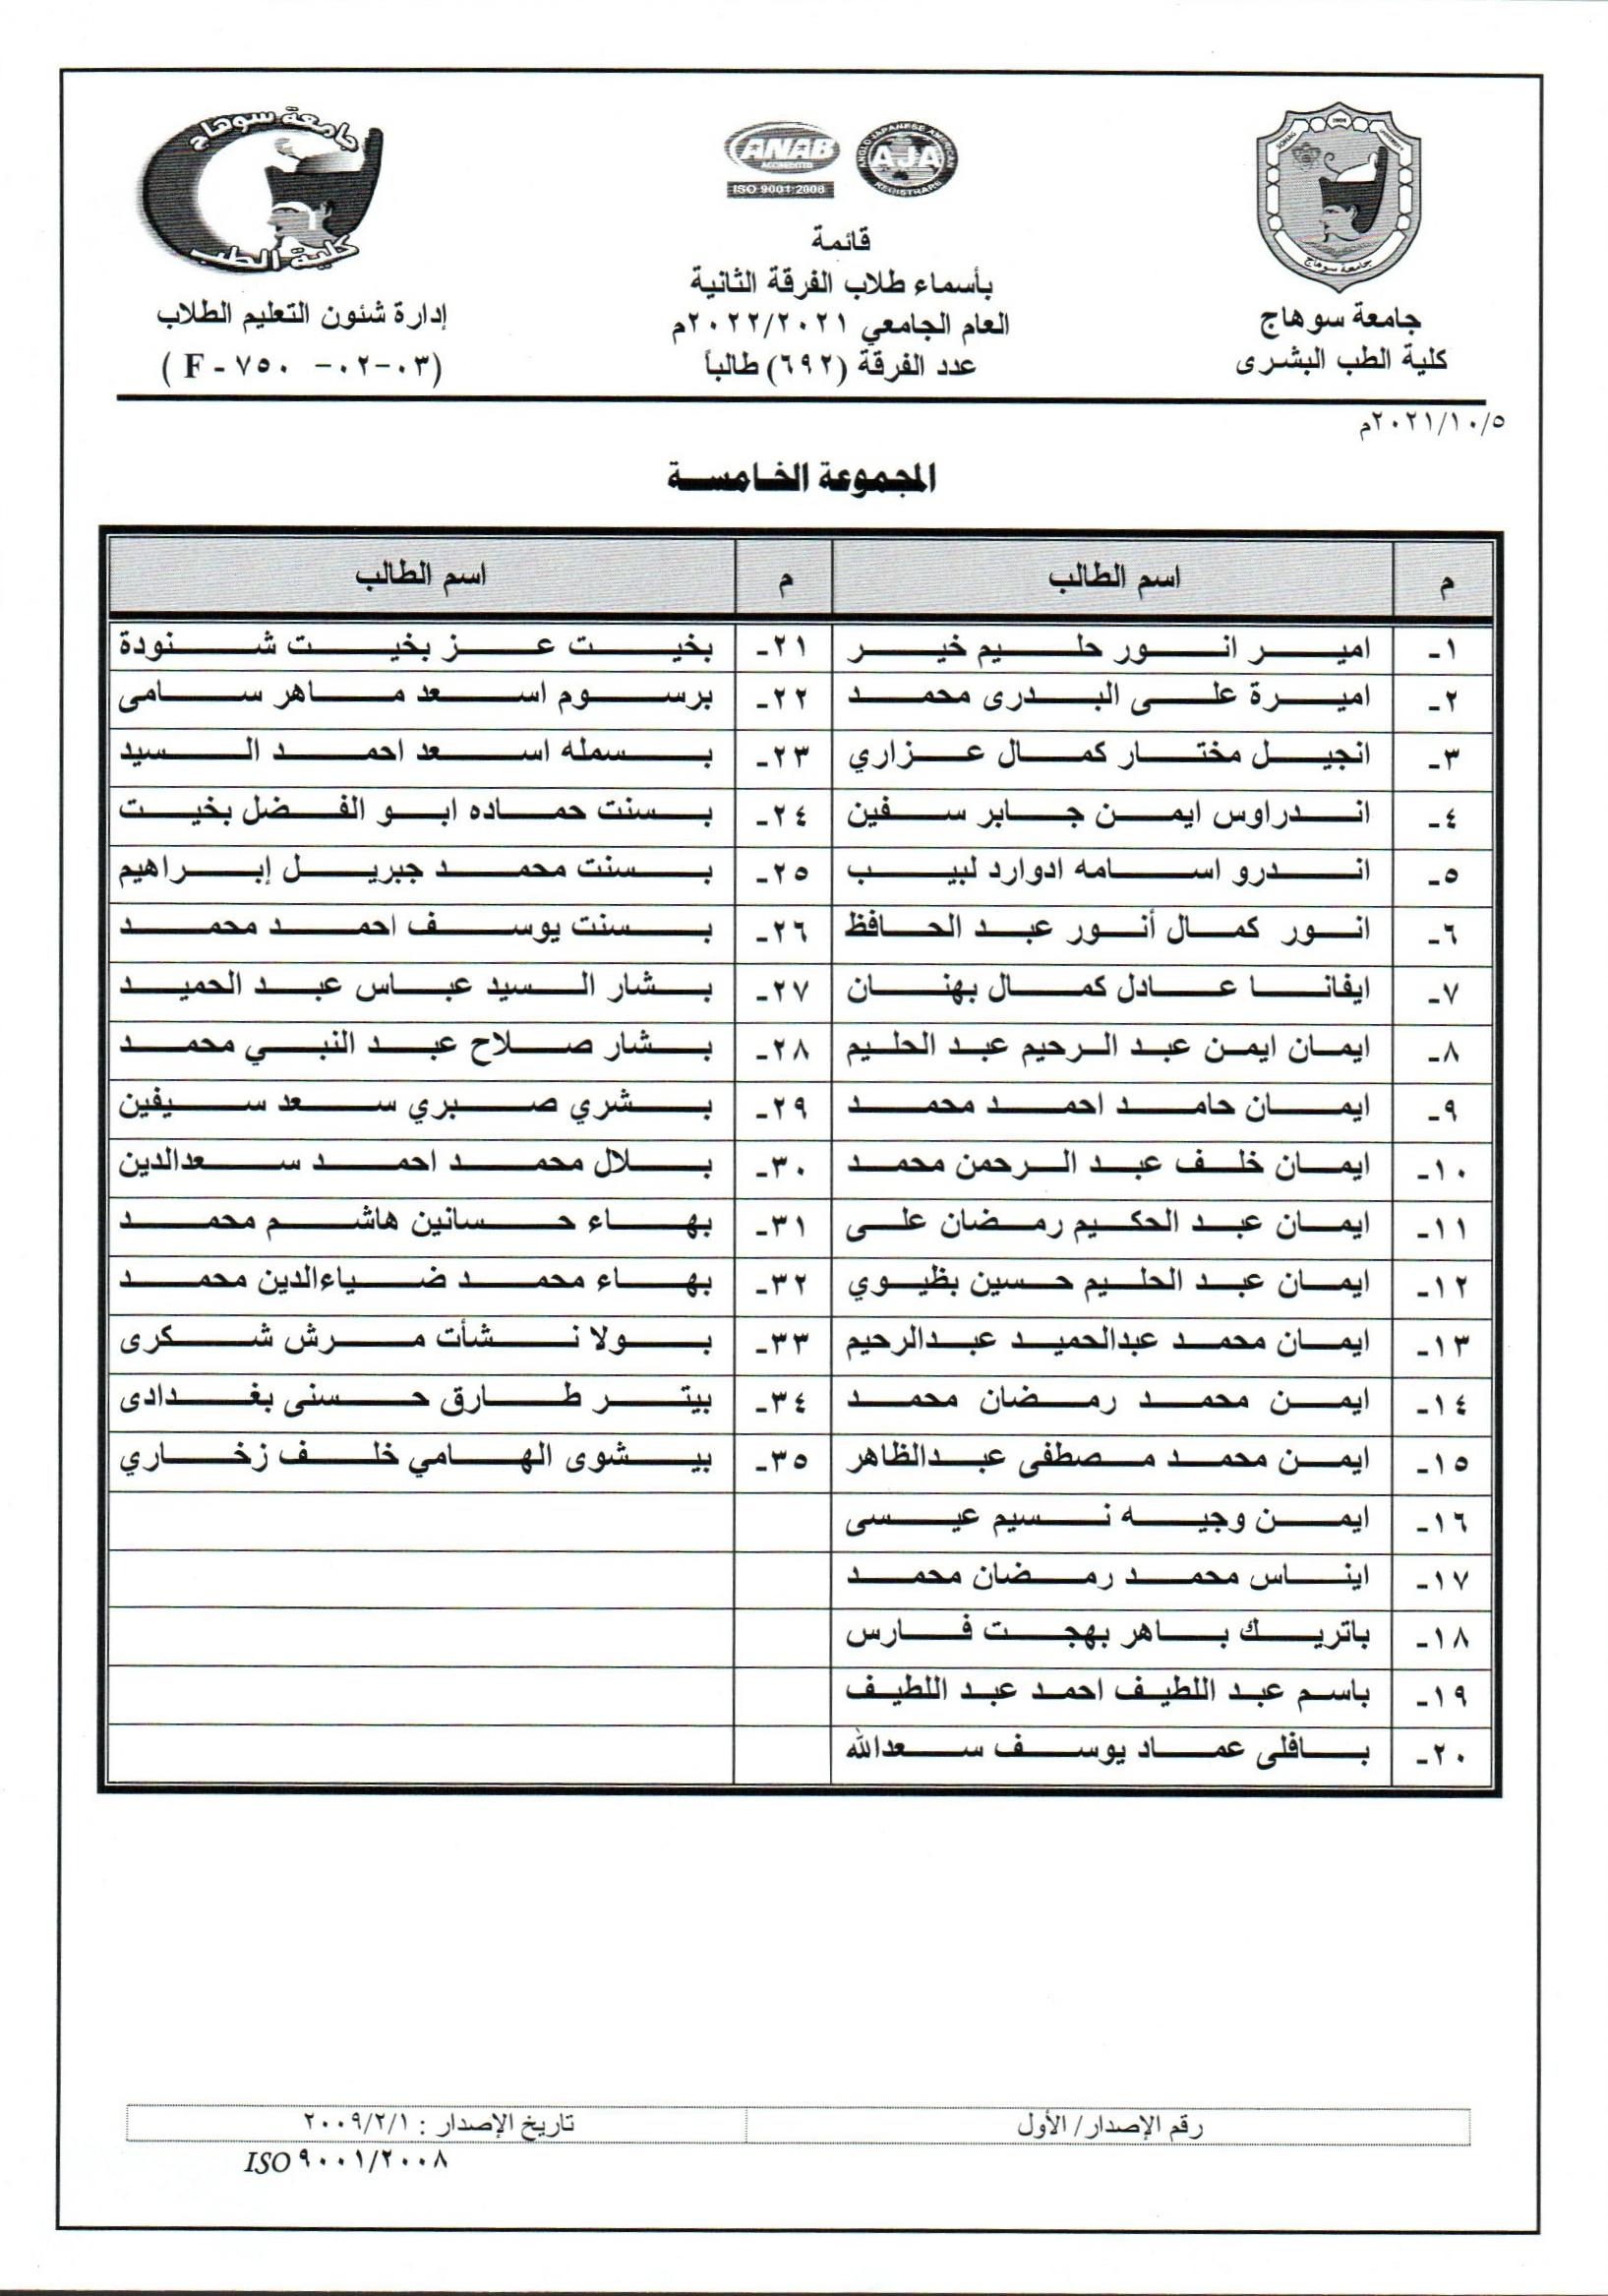 جامعة سوهاج
كلية الطب
ANAB
ACCREDITED
ISO 9001:2008
ANGLO JAPANESE AMERICAN
AJA
REGISTRARS
SOHAG 2006 UNIVERSITY
جامعة سوهاج
جامعة سوهاج
كلية الطب البشرى
قائمة
بأسماء طلاب الفرقة الثانية
العام الجامعي ٢٠٢٢/٢٠٢١م
عدد الفرقة (٦٩٢) طالباً
إدارة شئون التعليم الطلاب
(F - ٧٥٠ -٠٢-٠٣)
٢٠٢١/١٠/٥م
المجموعة الخامسة
م اسم الطالب م اسم الطالب
١- امير انور حليم خير ٢١- بخيت عز بخيت شنودة
٢- اميرة على البدرى محمد ٢٢- برسوم اسعد ماهر سامى
٣- انجيل مختار كمال عزاري ٢٣- بسمله اسعد احمد السيد
٤- اندراوس ايمن جابر سفين ٢٤- بسنت حماده ابو الفضل بخيت
٥- اندرو اسامه ادوارد لبيب ٢٥- بسنت محمد جبريل إبراهيم
٦- انور كمال أنور عبد الحافظ ٢٦- بسنت يوسف احمد محمد
٧- ايفانا عادل كمال بهنان ٢٧- بشار السيد عباس عبد الحميد
٨- ايمان ايمن عبد الرحيم عبد الحليم ٢٨- بشار صلاح عبد النبي محمد
٩- ايمان حامد احمد محمد ٢٩- بشري صبري سعد سيفين
١٠- ايمان خلف عبد الرحمن محمد ٣٠- بلال محمد احمد سعدالدين
١١- ايمان عبد الحكيم رمضان على ٣١- بهاء حسانين هاشم محمد
١٢- ايمان عبد الحليم حسين بظيوي ٣٢- بهاء محمد ضياءالدين محمد
١٣- ايمان محمد عبدالحميد عبدالرحيم ٣٣- بولا نشأت مرش شكرى
١٤- ايمن محمد رمضان محمد ٣٤- بيتر طارق حسنى بغدادى
١٥- ايمن محمد مصطفى عبدالظاهر ٣٥- بيشوى الهامي خلف زخاري
١٦- ايمن وجيه نسيم عيسى
١٧- ايناس محمد رمضان محمد
١٨- باتريك باهر بهجت فارس
١٩- باسم عبد اللطيف احمد عبد اللطيف
٢٠- بافلى عماد يوسف سعدالله
رقم الإصدار/ الأول تاريخ الإصدار : ٢٠٠٩/٢/١
ISO ٩٠٠١/٢٠٠٨